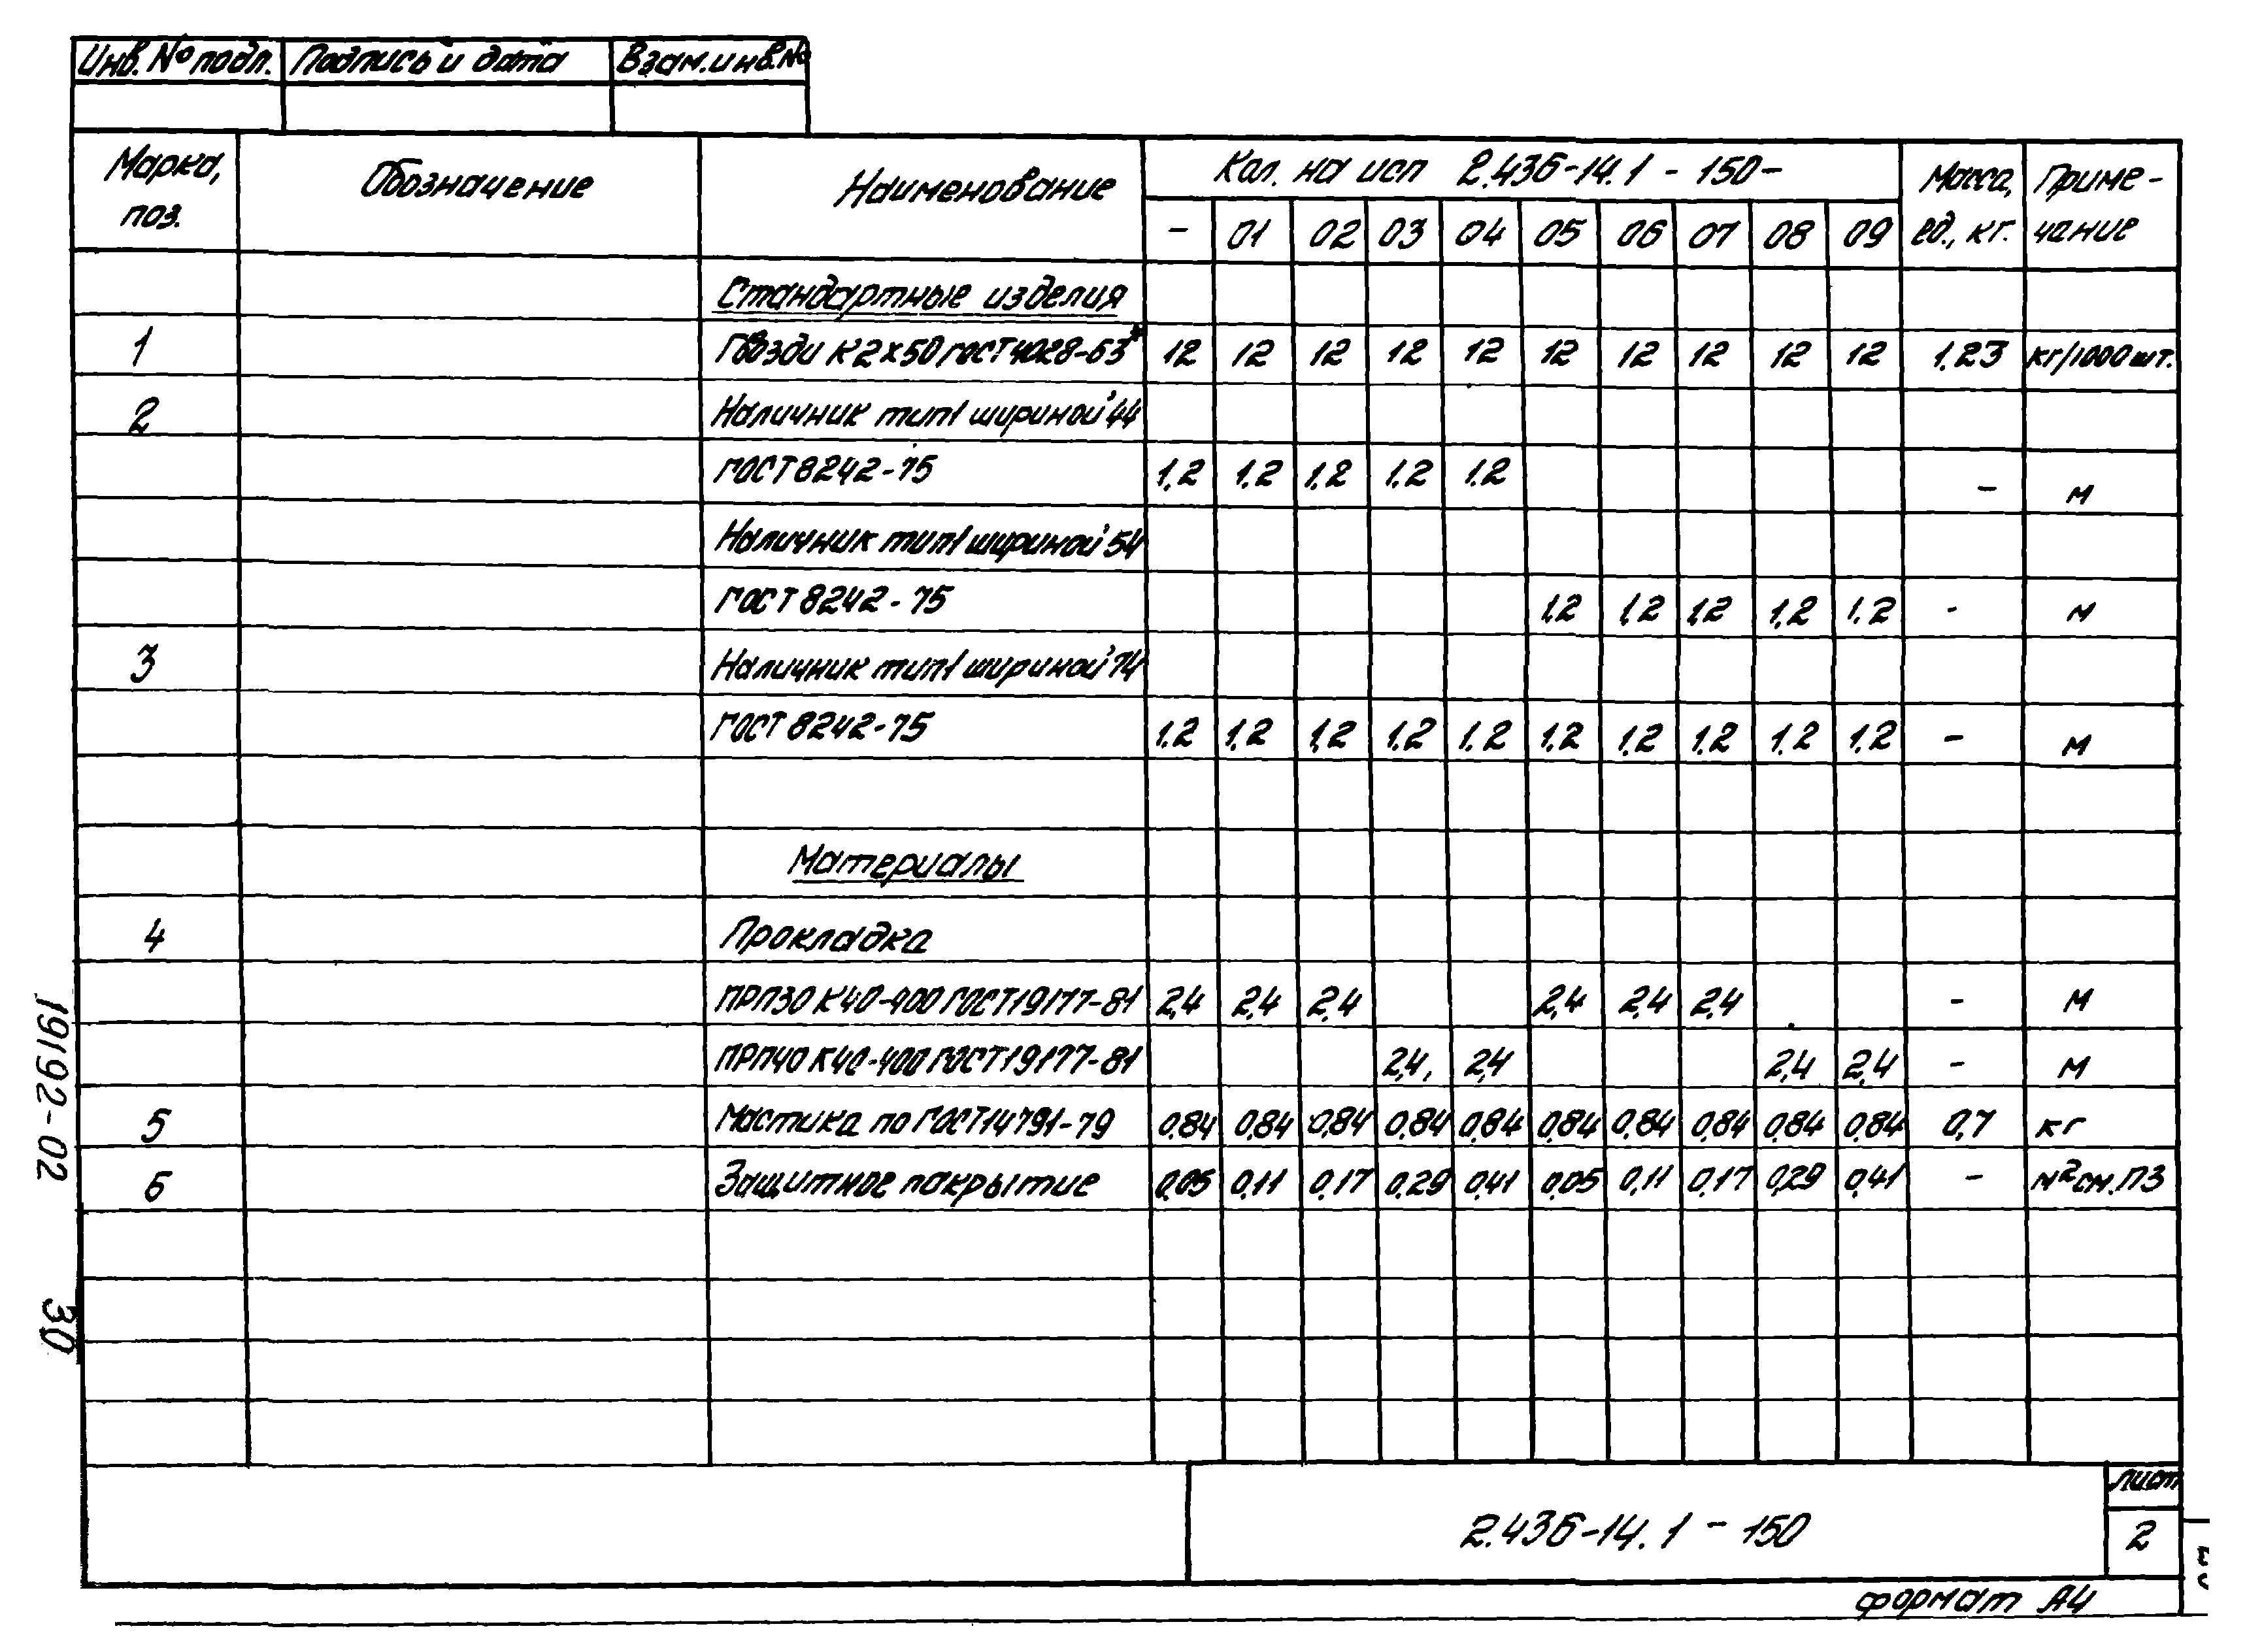 Инв. № подл. Подпись и дата Взам.инв.№
Марка, поз. Обозначение Наименование Кол. на исп 2.436-14.1 - 150- Масса, ед., кг. Приме- чание
- 01 02 03 04 05 06 07 08 09
Стандартные изделия
1 Гвозди К2х50 ГОСТ 4028-63* 12 12 12 12 12 12 12 12 12 12 1.23 кг/1000 шт.
2 Наличник тип1 шириной 44
ГОСТ 8242-75 1.2 1.2 1.2 1.2 1.2 - м
Наличник тип1 шириной 54
ГОСТ 8242-75 1,2 1,2 1,2 1,2 1.2 - м
3 Наличник тип1 шириной 74
ГОСТ 8242-75 1.2 1.2 1,2 1.2 1.2 1.2 1.2 1.2 1.2 1.2 - м
Материалы
4 Прокладка
ПРП30 К40-400 ГОСТ19177-81 2,4 2,4 2,4 2,4 2,4 2,4 - м
ПРП40 К40-400 ГОСТ19177-81 2,4, 2,4 2,4 2,4 - м
5 Мастика по ГОСТ14791-79 0,84 0,84 0,84 0,84 0,84 0,84 0,84 0,84 0,84 0,84 0,7 кг
6 Защитное покрытие 0,05 0,11 0,17 0,29 0,41 0,05 0,11 0,17 0,29 0,41 - м² см. П3
19192-02 30
2.436-14.1 - 150
Лист
2
формат А4